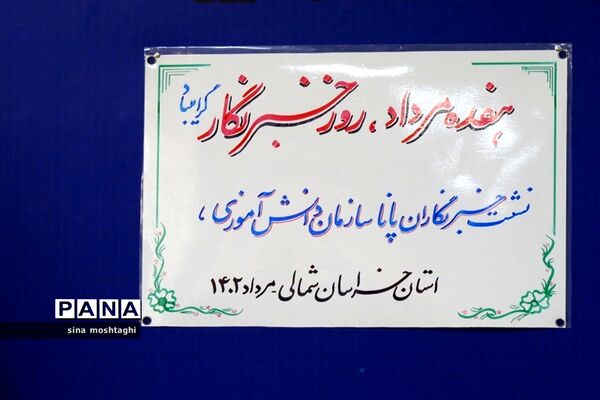 هفده مرداد، روز خبرنگار گرامیباد
نشست خبرنگاران پانا سازمان دانش آموزی،
استان خراسان شمالی - مرداد ۱۴۰۲
PANA
sina moshtaghi